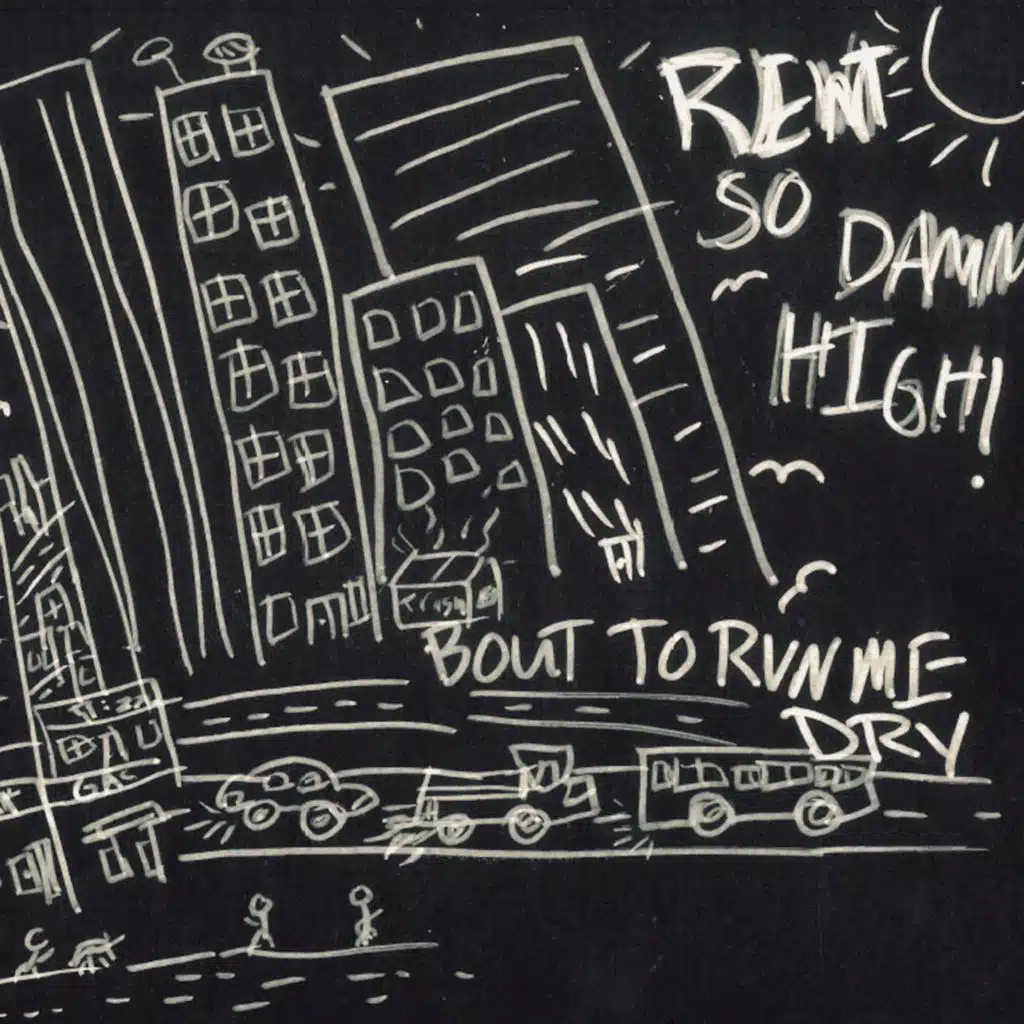 RENT
SO
DAMN
HIGH!
BOUT TO RUN ME
DRY
GAS